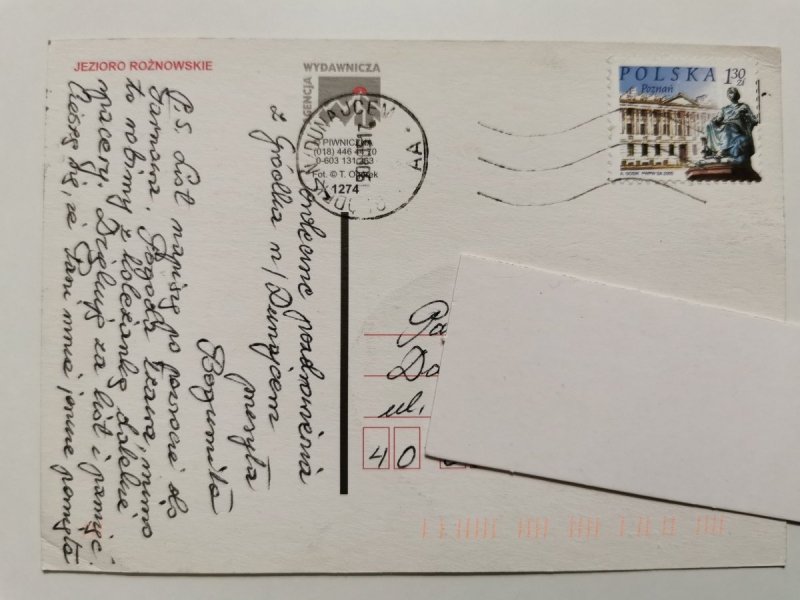 JEZIORO ROŻNOWSKIE
WYDAWNICZA
AGENCJA
PIWNICZNA
(018) 446 44 70
0-603 131 363
Fot. © T. Ogórek
1274
N/DUNAJCEM
AA
POLSKA 1,30 zł
Poznań
PWPW SA 2005
Serdeczne pozdrowienia
z Gródka n/Dunajcem
przesyła
Bogumiła
P.S. List napiszę po powrocie do
Tarnowa. Pogoda
to robimy z koleżanką dalekie
spacery. Dziękuję za list i pamięć.
Cieszę się, że Pani mnie jeszcze pamięta
Pa
Do
ul.
4 0